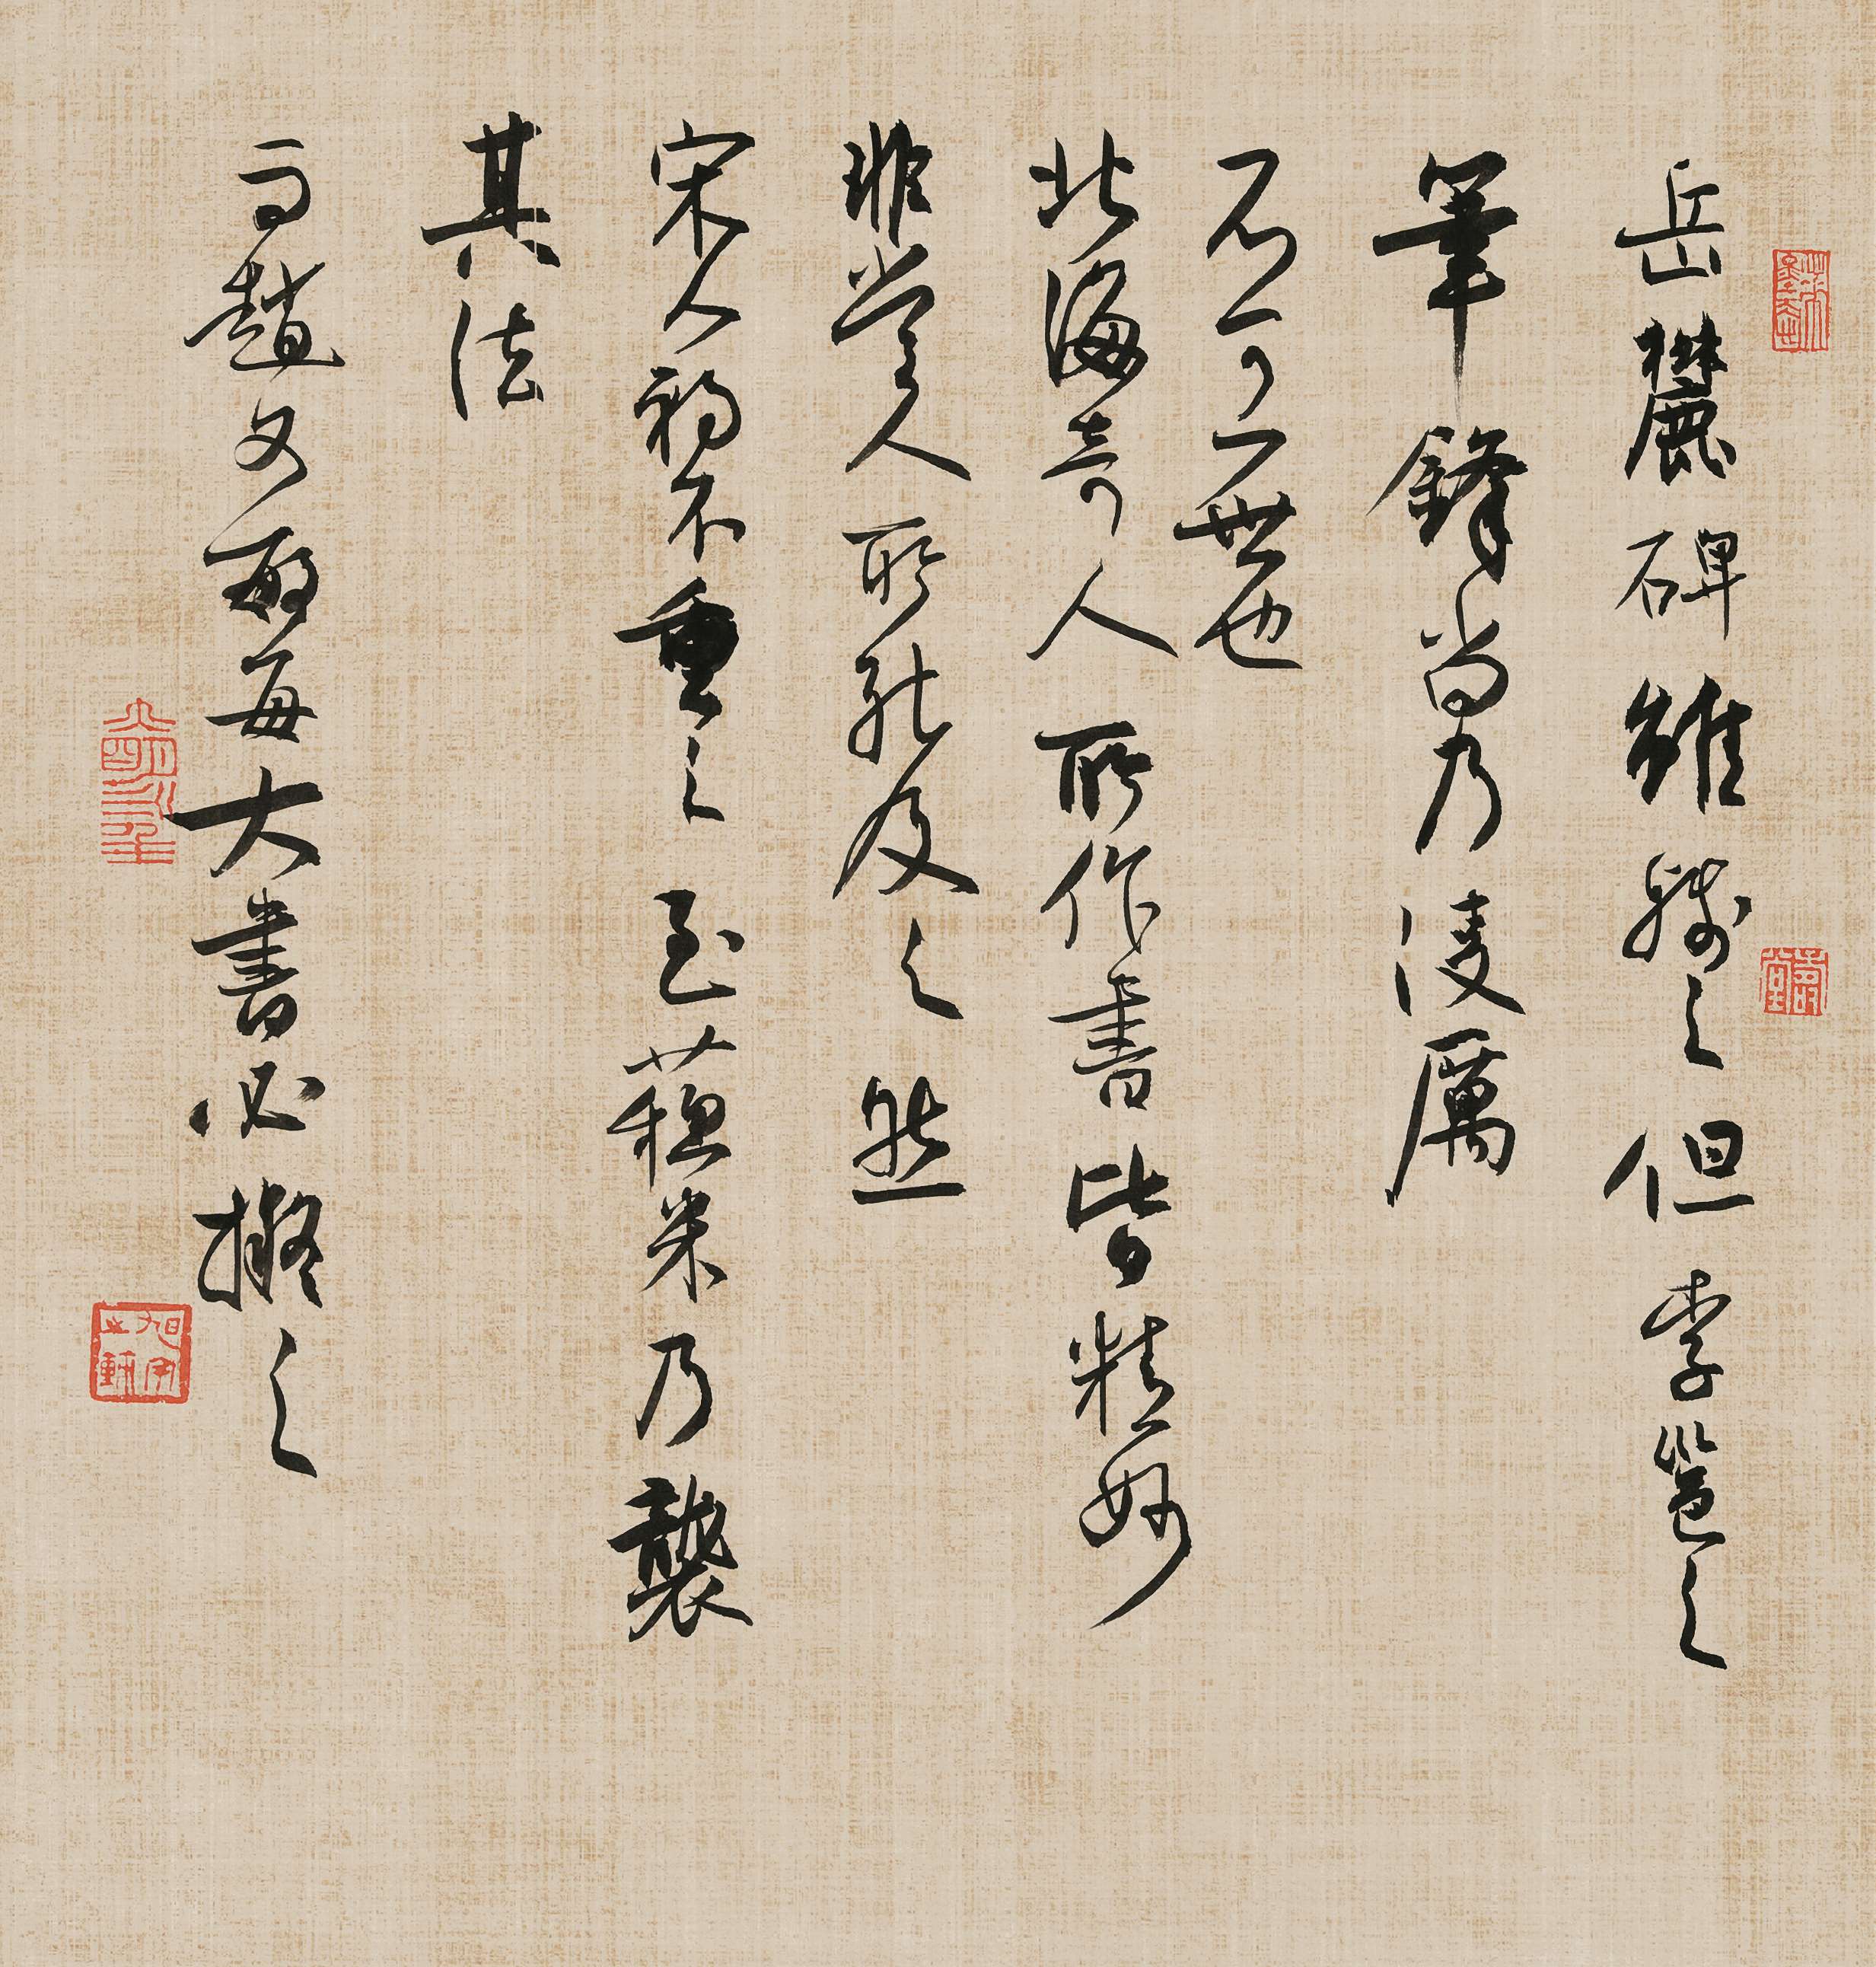 岳麓碑雖殘之但李邕之
筆鋒尚乃凌厲
不可一世也
北海奇人所作書皆精妙
非常人所能及之然
宋人初不重之至蘇米乃襲
其法
而趙文敏每大書必擬之